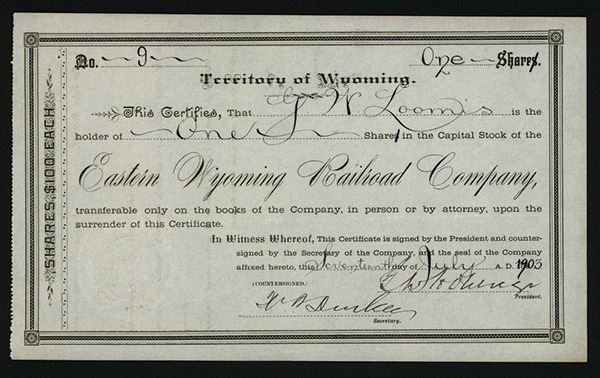 No. 9 One Shares.
Territory of Wyoming.
This Certifies, That W Loomis is the
holder of One Shares in the Capital Stock of the
Eastern Wyoming Railroad Company,
transferable only on the books of the Company, in person or by attorney, upon the
surrender of this Certificate.
In Witness Whereof, This Certificate is signed by the President and counter-
signed by the Secretary of the Company, and the seal of the Company
affixed hereto, this Seventeenth day of July A. D. 1903
(COUNTERSIGNED.)
President.
Secretary.
SHARES $100 EACH